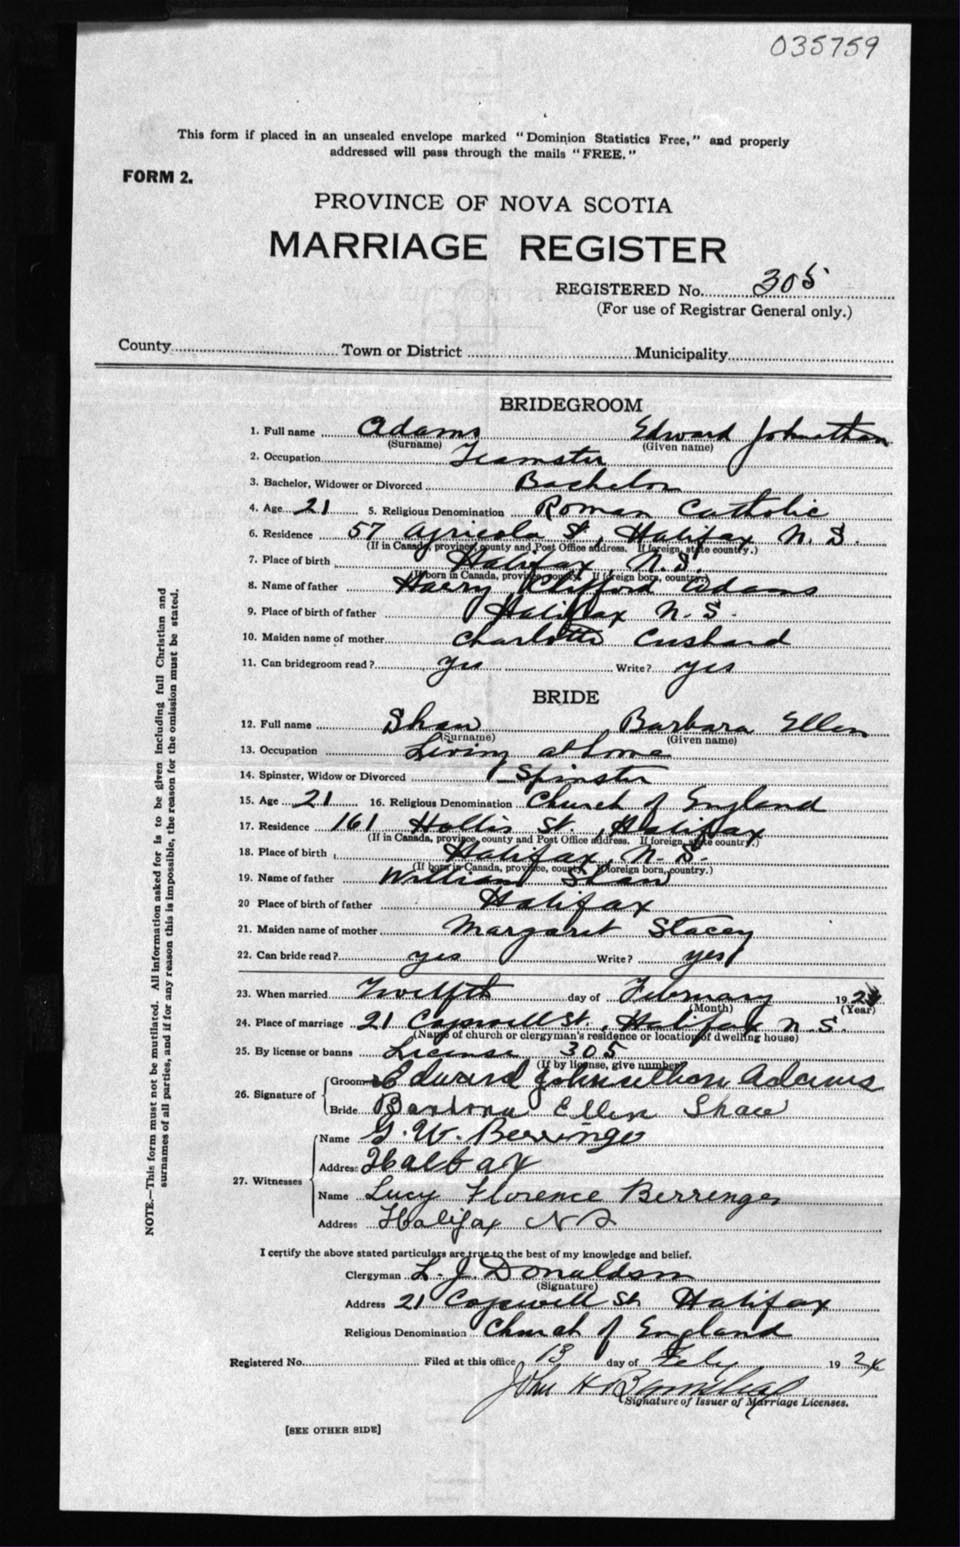 035759
This form if placed in an unsealed envelope marked "Dominion Statistics Free," and properly
addressed will pass through the mails "FREE."
FORM 2.
PROVINCE OF NOVA SCOTIA
MARRIAGE REGISTER
REGISTERED No. 305
(For use of Registrar General only.)
County Town or District Municipality
BRIDEGROOM
1. Full name Adams Edward Johnathan
(Surname) (Given name)
2. Occupation Teamster
3. Bachelor, Widower or Divorced Bachelor
4. Age 21 5. Religious Denomination Roman Catholic
6. Residence 57 Agricola St, Halifax N. S.
(If in Canada, province, county and Post Office address. If foreign, state country.)
7. Place of birth Halifax, N. S.
(If born in Canada, province, county. If foreign born, country.)
8. Name of father Harry Clifford Adams
9. Place of birth of father Halifax N. S.
10. Maiden name of mother Charlotte Cushard
11. Can bridegroom read? yes Write? yes
BRIDE
12. Full name Shaw Barbara Ellen
(Surname) (Given name)
13. Occupation Living at home
14. Spinster, Widow or Divorced Spinster
15. Age 21 16. Religious Denomination Church of England
17. Residence 161 Hollis St., Halifax
(If in Canada, province, county and Post Office address. If foreign, state country.)
18. Place of birth Halifax, N. S.
(If born in Canada, province, county. If foreign born, country.)
19. Name of father William Shaw
20 Place of birth of father Halifax
21. Maiden name of mother Margaret Stacey
22. Can bride read? yes Write? yes
23. When married Twelfth day of February 1924
(Month) (Year)
24. Place of marriage 21 Cogswell St, Halifax N. S.
(Name of church or clergyman's residence or location of dwelling house)
25. By license or banns License 305
(If by license, give number)
26. Signature of Groom Edward Adams
Bride Barbra Ellen Shaw
27. Witnesses
Name G. W. Berringer
Address Halifax
Name Lucy Florence Berringer
Address Halifax N S
I certify the above stated particulars are true to the best of my knowledge and belief.
Clergyman L. J. Donaldson
(Signature)
Address 21 Cogswell St Halifax
Religious Denomination Church of England
Registered No. Filed at this office 13 day of Feby 1924
John H
Signature of Issuer of Marriage Licenses.
[SEE OTHER SIDE]
NOTE.—This form must not be mutilated. All information asked for is to be given including full Christian and
surnames of all parties, and if for any reason this is impossible, the reason for the omission must be stated.